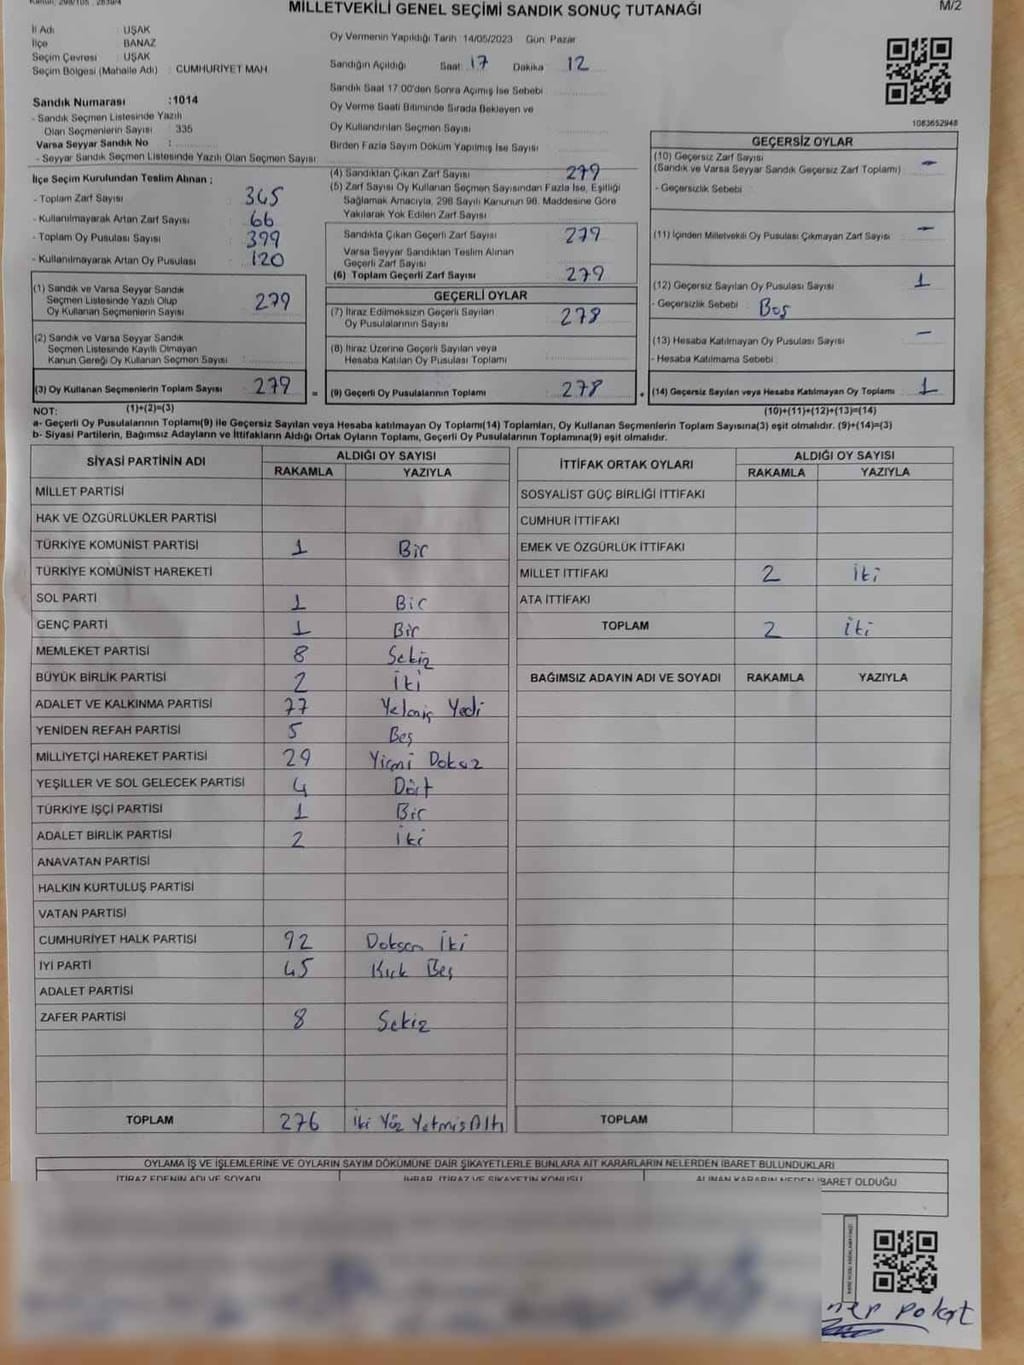 MİLLETVEKİLİ GENEL SEÇİMİ SANDIK SONUÇ TUTANAĞI
M/2
İl Adı : UŞAK
İlçe : BANAZ
Seçim Çevresi : UŞAK
Seçim Bölgesi (Mahalle Adı) : CUMHURİYET MAH.
Sandık Numarası :1014
- Sandık Seçmen Listesinde Yazılı
Olan Seçmenlerin Sayısı : 335
Varsa Seyyar Sandık No :
- Seyyar Sandık Seçmen Listesinde Yazılı Olan Seçmen Sayısı :
Oy Vermenin Yapıldığı Tarih :14/05/2023 Gün: Pazar
Sandığın Açıldığı Saat : 17 Dakika : 12
Sandık Saat 17.00'den Sonra Açımış İse Sebebi
Oy Verme Saati Bitiminde Sırada Bekleyen ve
Oy Kullandırılan Seçmen Sayısı
Birden Fazla Sayım Döküm Yapılmış İse Sayısı
1083652948
İlçe Seçim Kurulundan Teslim Alınan ;
- Toplam Zarf Sayısı : 345
- Kullanılmayarak Artan Zarf Sayısı : 66
- Toplam Oy Pusulası Sayısı : 399
- Kullanılmayarak Artan Oy Pusulası : 120
(1) Sandık ve Varsa Seyyar Sandık
Seçmen Listesinde Yazılı Olup
Oy Kullanan Seçmenlerin Sayısı : 279
(2) Sandık ve Varsa Seyyar Sandık
Seçmen Listesinde Kayıtlı Olmayan
Kanun Gereği Oy Kullanan Seçmen Sayısı :
(3) Oy Kullanan Seçmenlerin Toplam Sayısı : 279
(1)+(2)=(3)
(4) Sandıktan Çıkan Zarf Sayısı 279
(5) Zarf Sayısı Oy Kullanan Seçmen Sayısından Fazla İse, Eşitliği
Sağlamak Amacıyla, 298 Sayılı Kanunun 98. Maddesine Göre
Yakılarak Yok Edilen Zarf Sayısı
Sandıkta Çıkan Geçerli Zarf Sayısı 279
Varsa Seyyar Sandıktan Teslim Alınan
Geçerli Zarf Sayısı
(6) Toplam Geçerli Zarf Sayısı 279
GEÇERLİ OYLAR
(7) İtiraz Edilmeksizin Geçerli Sayılan
Oy Pusulalarının Sayısı : 278
(8) İtiraz Üzerine Geçerli Sayılan veya
Hesaba Katılan Oy Pusulası Toplamı :
= (9) Geçerli Oy Pusulalarının Toplamı : 278
GEÇERSİZ OYLAR
(10) Geçersiz Zarf Sayısı
(Sandık ve Varsa Seyyar Sandık Geçersiz Zarf Toplamı) : -
- Geçersizlik Sebebi
(11) İçinden Milletvekili Oy Pusulası Çıkmayan Zarf Sayısı -
(12) Geçersiz Sayılan Oy Pusulası Sayısı : 1
- Geçersizlik Sebebi : Boş
(13) Hesaba Katılmayan Oy Pusulası Sayısı : -
- Hesaba Katılmama Sebebi :
+ (14) Geçersiz Sayılan veya Hesaba Katılmayan Oy Toplamı 1
(10)+(11)+(12)+(13)=(14)
NOT:
a- Geçerli Oy Pusulalarının Toplamı(9) ile Geçersiz Sayılan veya Hesaba katılmayan Oy Toplamı(14) Toplamları, Oy Kullanan Seçmenlerin Toplam Sayısına(3) eşit olmalıdır. (9)+(14)=(3)
b- Siyasi Partilerin, Bağımsız Adayların ve İttifakların Aldığı Ortak Oyların Toplamı, Geçerli Oy Pusulalarının Toplamına(9) eşit olmalıdır.
SİYASİ PARTİNİN ADI ALDIĞI OY SAYISI
RAKAMLA YAZIYLA
MİLLET PARTİSİ
HAK VE ÖZGÜRLÜKLER PARTİSİ
TÜRKİYE KOMÜNİST PARTİSİ 1 Bir
TÜRKİYE KOMÜNİST HAREKETİ
SOL PARTİ 1 Bir
GENÇ PARTİ 1 Bir
MEMLEKET PARTİSİ 8 Sekiz
BÜYÜK BİRLİK PARTİSİ 2 İki
ADALET VE KALKINMA PARTİSİ 77 Yetmiş Yedi
YENİDEN REFAH PARTİSİ 5 Beş
MİLLİYETÇİ HAREKET PARTİSİ 29 Yirmi Dokuz
YEŞİLLER VE SOL GELECEK PARTİSİ 4 Dört
TÜRKİYE İŞÇİ PARTİSİ 1 Bir
ADALET BİRLİK PARTİSİ 2 İki
ANAVATAN PARTİSİ
HALKIN KURTULUŞ PARTİSİ
VATAN PARTİSİ
CUMHURİYET HALK PARTİSİ 92 Doksan İki
İYİ PARTİ 45 Kırk Beş
ADALET PARTİSİ
ZAFER PARTİSİ 8 Sekiz
TOPLAM 276 İki Yüz Yetmiş Altı
İTTİFAK ORTAK OYLARI ALDIĞI OY SAYISI
RAKAMLA YAZIYLA
SOSYALİST GÜÇ BİRLİĞİ İTTİFAKI
CUMHUR İTTİFAKI
EMEK VE ÖZGÜRLÜK İTTİFAKI
MİLLET İTTİFAKI 2 İki
ATA İTTİFAKI
TOPLAM 2 İki
BAĞIMSIZ ADAYIN ADI VE SOYADI RAKAMLA YAZIYLA
TOPLAM
OYLAMA İŞ VE İŞLEMLERİNE VE OYLARIN SAYIM DÖKÜMÜNE DAİR ŞİKAYETLERLE BUNLARA AİT KARARLARIN NELERDEN İBARET BULUNDUKLARI
İTİRAZ EDENİN ADI VE SOYADI İHBAR, İTİRAZ VE ŞİKAYETİN KONUSU ALINAN KARARIN NEDEN İBARET OLDUĞU
polat